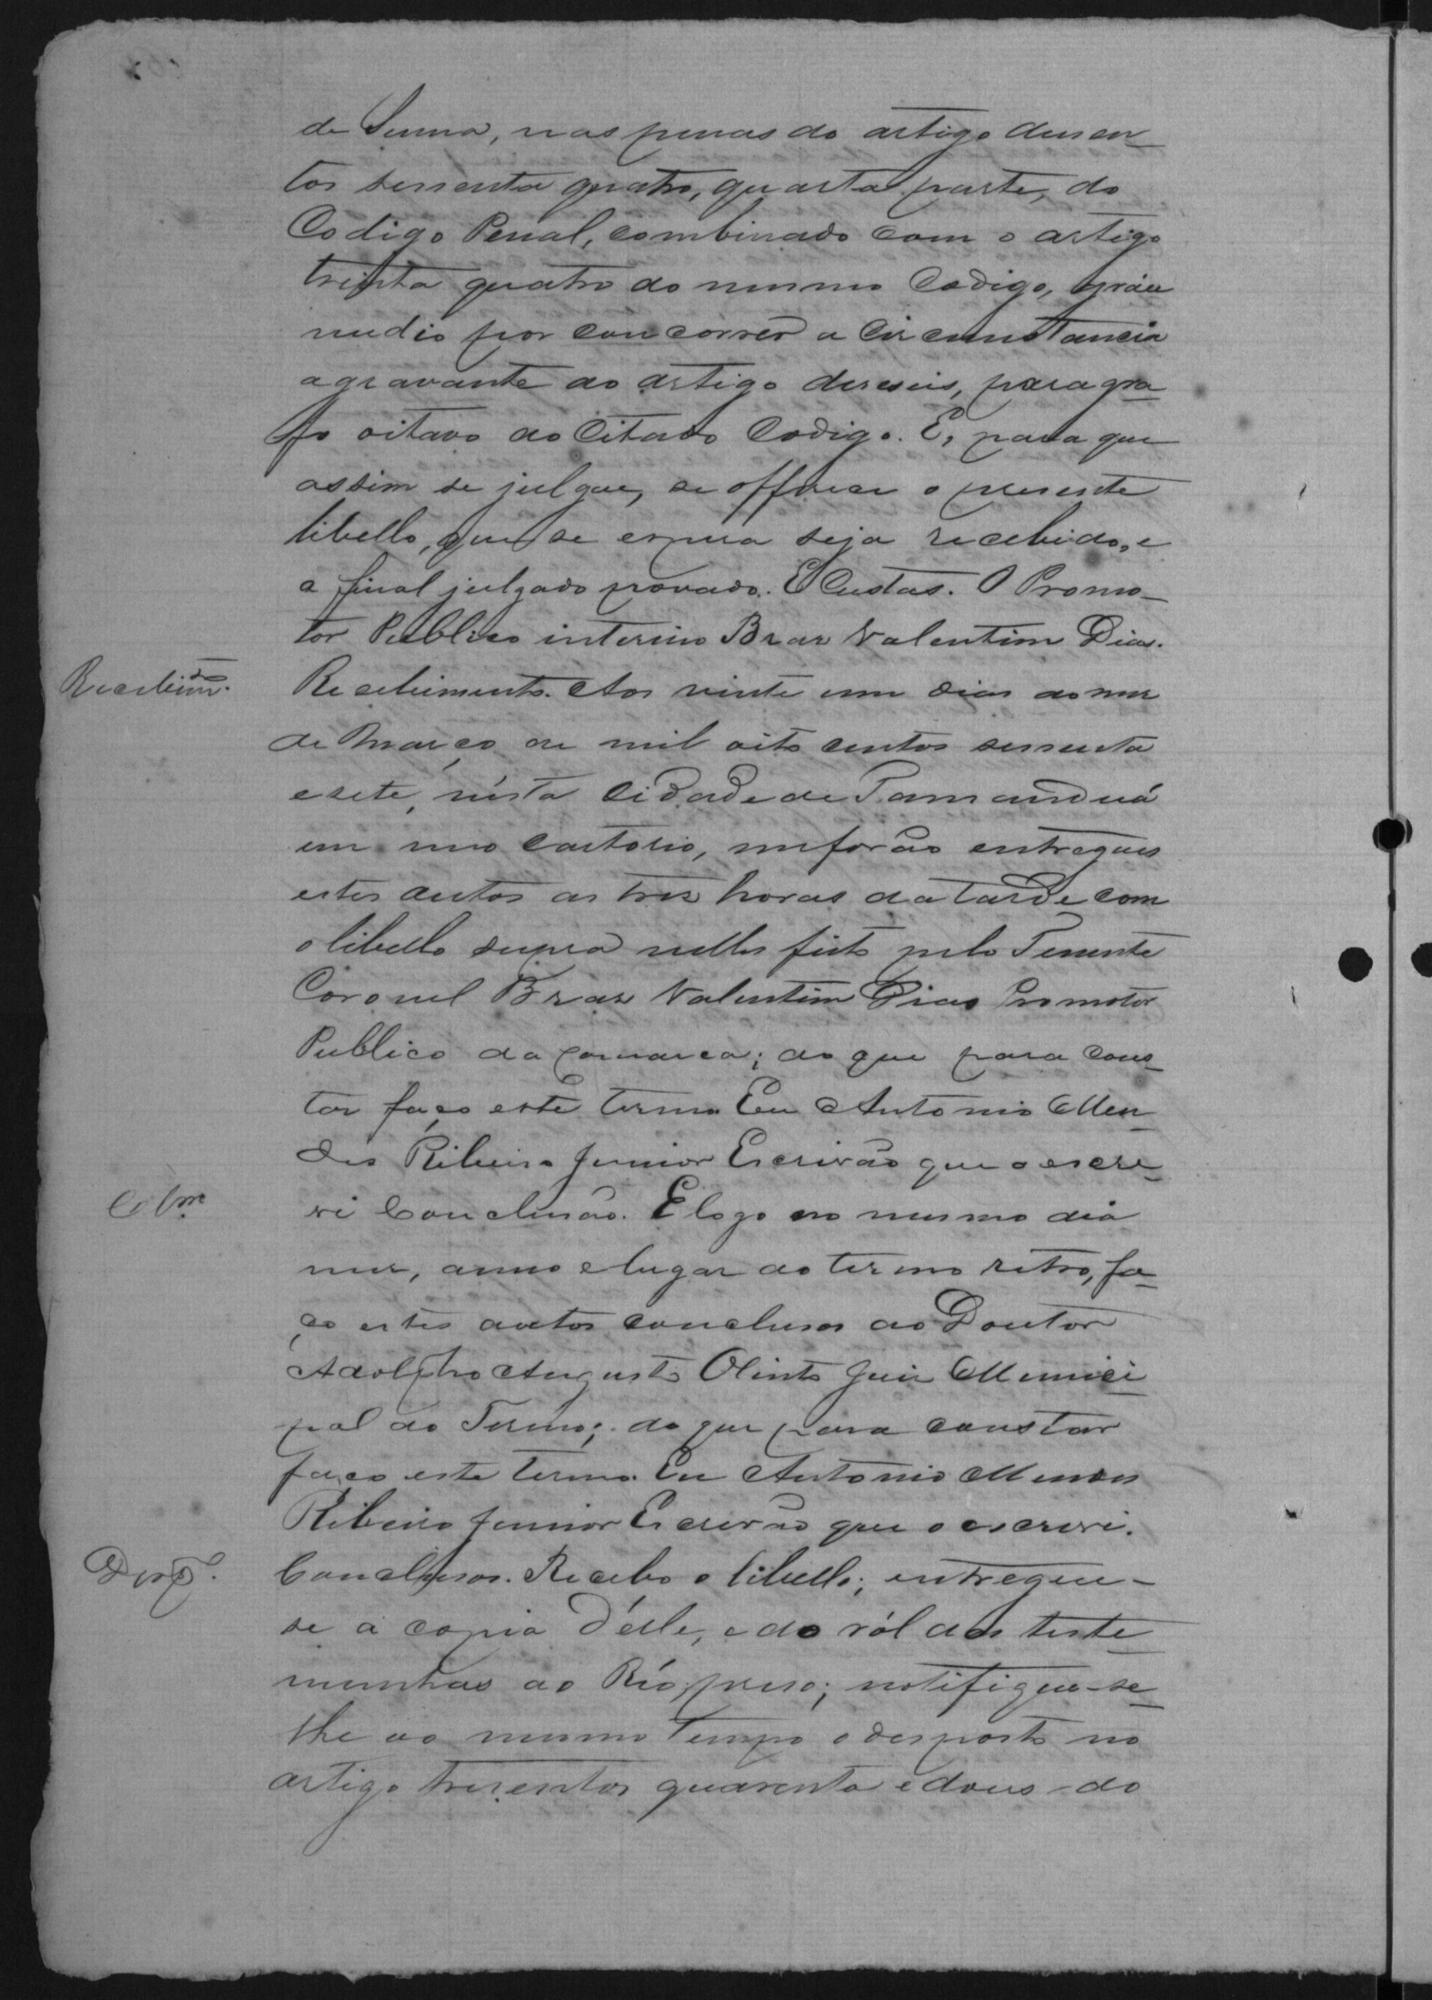 de Senna, nas penas do artigo dusen-
tos sessenta quatro, quarta parte, do
Codigo Penal, combinado com o artigo
trinta quatro do mesmo Codigo, gráu
medio por concorrer a circumstancia
agravante do artigo deseseis, paragra-
fo oitavo do Citado Codigo. E, para que
assim se julgue, se offerece o presente
libello, que se espera seja recebido, e
a final julgado provado. E Custas. O Promo-
tor Publico interino Braz Valentim Dias.
Recebim.to
Recebimento. Aos vinte um dias do mez
de Março de mil oito centos sessenta
e sete, nésta Cidade de Tamanduá
em meo Cartorio, me forão entregues
estes autos as tres horas da tarde com
o libello supra nelles feito pelo Tenente
Coronel Braz Valentim Dias Promotor
Publico da Comarca; do que para cons-
tar faço este termo Eu Antonio Men-
des Ribeiro Junior Escrivão que o escre-
vi Conclusão. E logo no mesmo dia
mez, anno e lugar do termo retro, fa-
ço estes autos conclusos ao Doutor
Adolpho Augusto Olinto Juiz Munici-
pal do Termo; do que para constar
faço este termo. Eu Antonio Mendes
Ribeiro Junior Escrivão que o escrevi.
Conclusos. Recebo o libello; entregue-
se a copia d'élle, e do ról das teste-
munhas ao Réo preso; notifique-se-
lhe ao mesmo tempo o desposto no
artigo tresentos quarenta e dous do